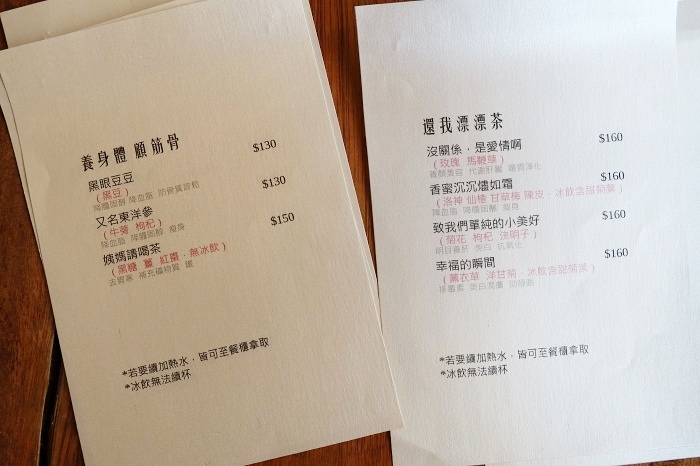 養身體 顧筋骨
黑眼豆豆 $130
（黑豆）
降膽固醇 降血脂 防骨質疏鬆
又名東洋參 $130
（牛蒡 枸杞）
降血脂 降膽固醇 瘦身
姨媽請喝茶 $150
（黑糖 薑 紅棗．無冰飲）
去胃寒 補充礦物質 鐵
*若要續加熱水，皆可至餐櫃拿取
*冰飲無法續杯
還我漂漂茶
沒關係，是愛情啊 $160
（玫瑰 馬鞭草）
養顏美容 代謝肝臟
香蜜沉沉燼如霜 $160
（洛神 仙楂 甘草梅 陳皮．冰飲含甜菊葉）
降血脂 降膽固醇 瘦身
致我們單純的小美好 $160
（菊花 枸杞 決明子）
明目養肝 美白 抗氧化
幸福的瞬間 $160
（薰衣草 洋甘菊．冰飲含甜菊葉）
*若要續加熱水，皆可至餐櫃拿取
*冰飲無法續杯